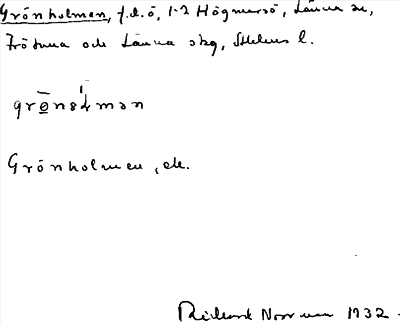 Grönholmen, f.d. ö, 1-2 Högmarsö, Länna sn,
Frötuna och Länna skg, Sthlms l.
Grönholmen, do.
Rickard Norrman 1932